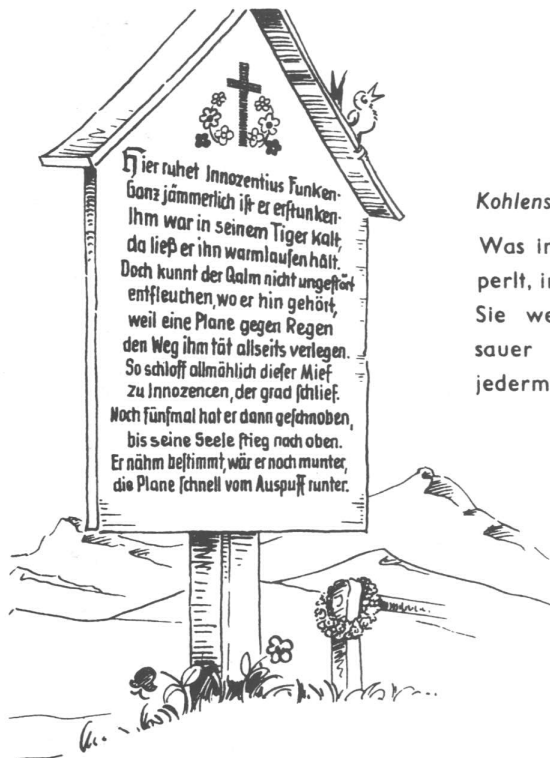 Hier ruhet Innozentius Funken-
Ganz jämmerlich ist er erstunken-
Ihm war in seinem Tiger kalt,
da ließ er ihn warmlaufen halt.
Doch kunnt der Qalm nicht ungestört
entfleuchen, wo er hin gehört,
weil eine Plane gegen Regen
den Weg ihm tät allseits verlegen.
So schloff allmählich dieser Mief
zu Innozencen, der grad schlief.
Noch fünfmal hat er dann geschnoben,
bis seine Seele stieg nach oben.
Er nähm bestimmt, wär er noch munter,
die Plane schnell vom Auspuff runter.
Kohlens
Was in
perlt, in
Sie we
sauer
jederm